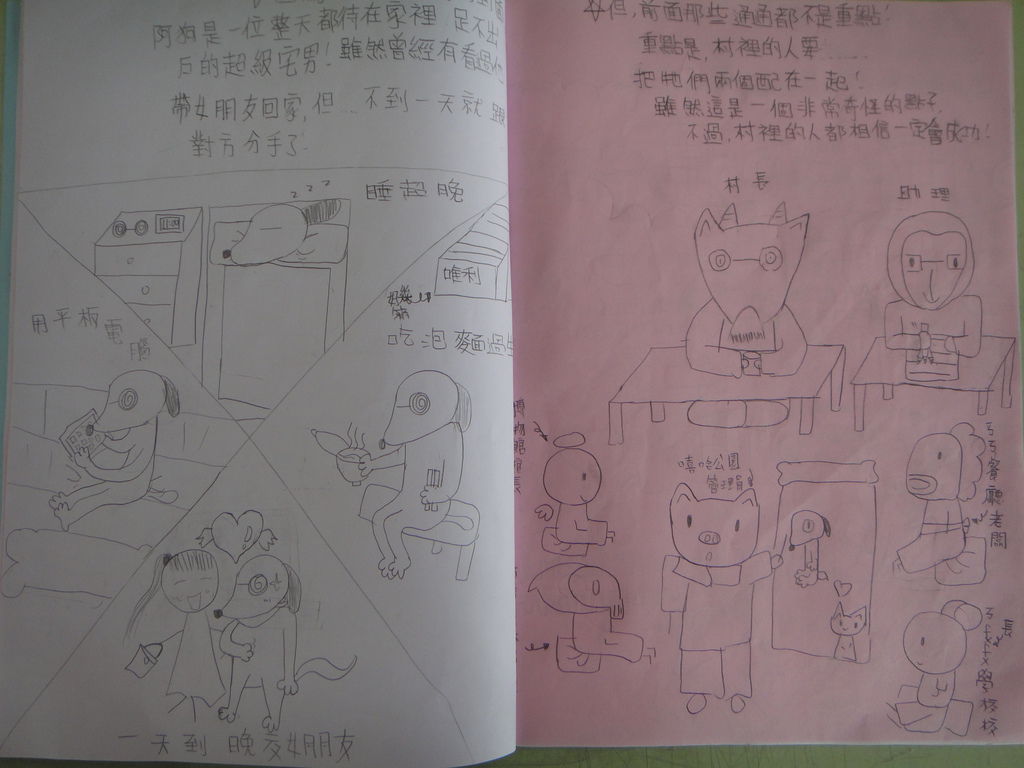 阿狗是一位整天都待在家裡,足不出
戶的超級宅男!雖然曾經有看過他
帶女朋友回家,但...不到一天就跟
對方分手了
睡超晚
z z z
唯利
用平板電腦
吃泡麵過生
一天到晚交女朋友
但,前面那些通通都不是重點!
重點是,村裡的人要......
把牠們兩個配在一起!
雖然這是一個非常奇怪的點子,
不過,村裡的人都相信一定會成功!
村長
助理
博物館館長
嘻哈公園
管理員
ㄎㄎ餐廳老闆
學校校長